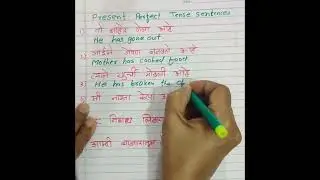 Present Perfect Tense Sentences
1) तो बाहेर गेला आहे
He has gone out
आईने जेवण बनवले आहे
Mother has cooked food
त्याने खुर्ची मोडली आहे
3) He has broken the
मी नाश्ता केला
निबंध